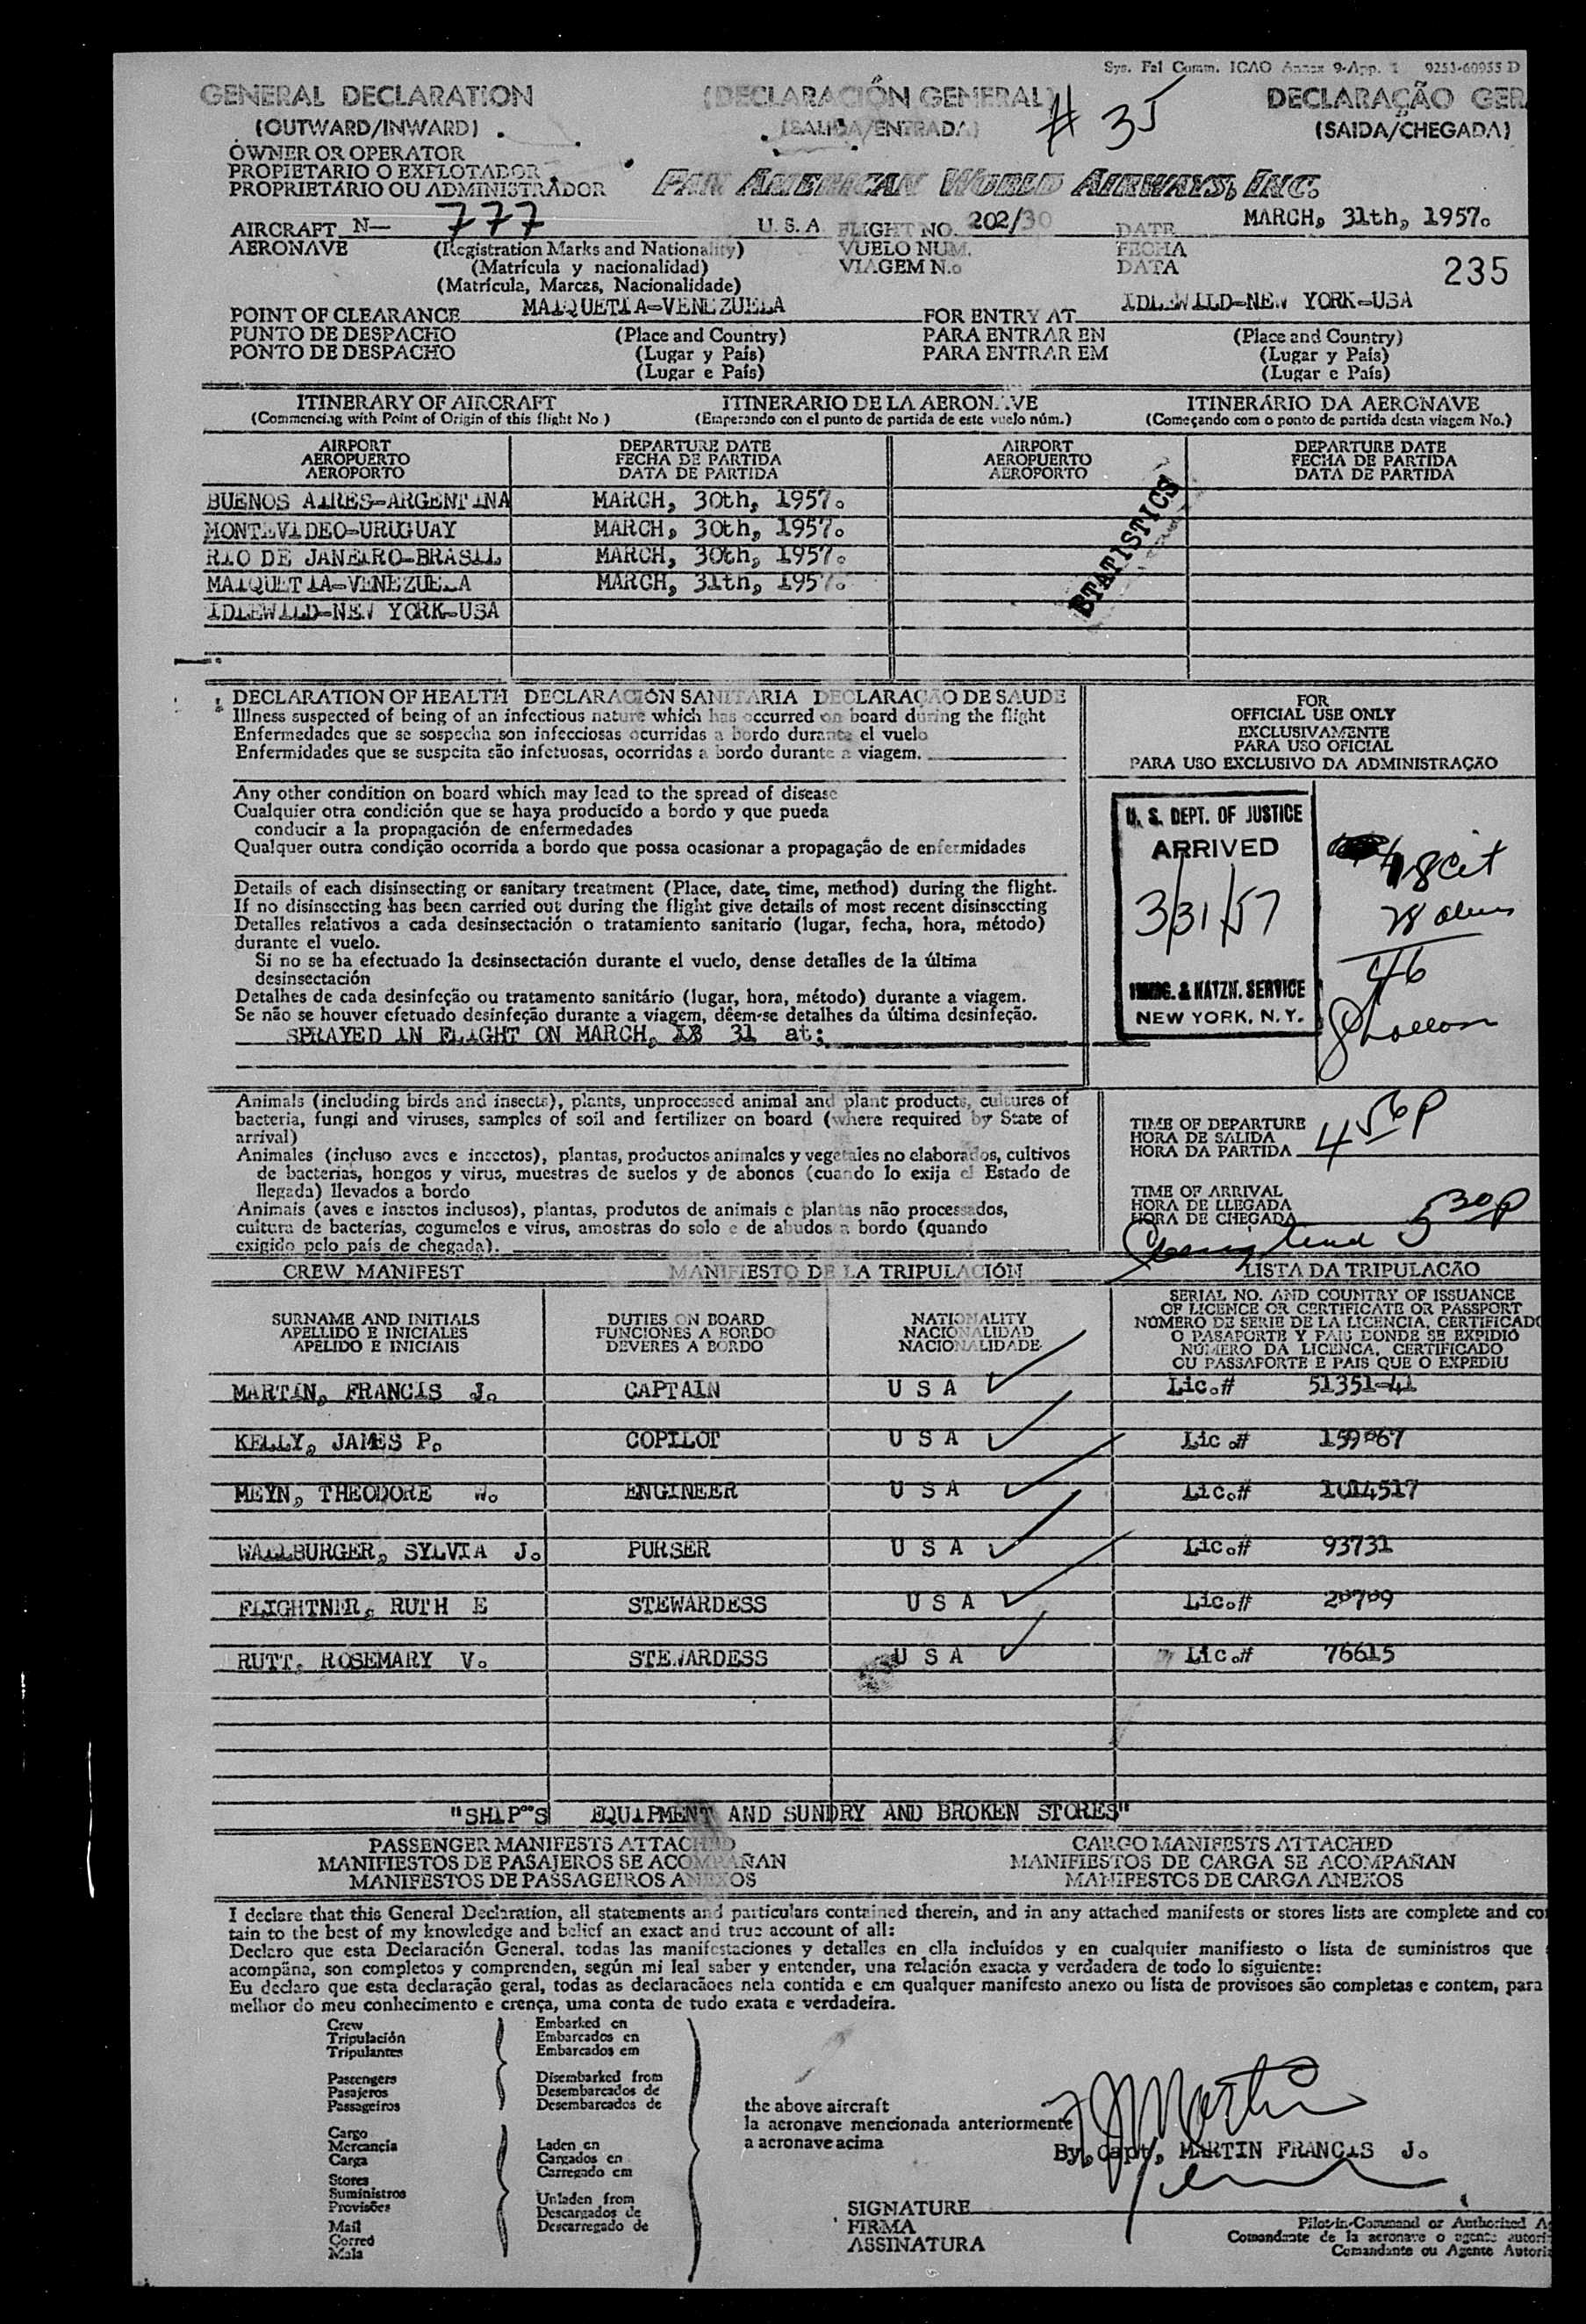 Sys. Fal Comm. ICAO Annex 9-App. 1 9253-60955 D
GENERAL DECLARATION (DECLARACIÓN GENERAL) DECLARAÇÃO GER
(OUTWARD/INWARD) (SALIDA/ENTRADA) # 35 (SAIDA/CHEGADA)
OWNER OR OPERATOR
PROPIETARIO O EXPLOTADOR
PROPRIETÁRIO OU ADMINISTRADOR PAN AMERICAN WORLD AIRWAYS, INC.
AIRCRAFT N— 777 U. S. A FLIGHT NO. 202/30 DATE MARCH, 31th, 1957.
AERONAVE (Registration Marks and Nationality) VUELO NUM. FECHA
(Matrícula y nacionalidad) VIAGEM N.o DATA 235
(Matrícula, Marcas, Nacionalidade)
POINT OF CLEARANCE MAIQUETIA-VENEZUELA FOR ENTRY AT IDLEWILD-NEW YORK-USA
PUNTO DE DESPACHO (Place and Country) PARA ENTRAR EN (Place and Country)
PONTO DE DESPACHO (Lugar y País) PARA ENTRAR EM (Lugar y País)
(Lugar e País) (Lugar e País)
ITINERARY OF AIRCRAFT ITINERARIO DE LA AERONAVE ITINERÁRIO DA AERONAVE
(Commencing with Point of Origin of this flight No.) (Emperando con el punto de partida de este vuelo núm.) (Começando com o ponto de partida desta viagem No.)
AIRPORT DEPARTURE DATE AIRPORT DEPARTURE DATE
AEROPUERTO FECHA DE PARTIDA AEROPUERTO FECHA DE PARTIDA
AEROPORTO DATA DE PARTIDA AEROPORTO DATA DE PARTIDA
BUENOS AIRES-ARGENTINA MARCH, 30th, 1957.
MONTEVIDEO-URUGUAY MARCH, 30th, 1957.
RIO DE JANEIRO-BRASIL MARCH, 30th, 1957.
MAIQUETIA-VENEZUELA MARCH, 31th, 1957.
IDLEWILD-NEW YORK-USA
STATISTICS
DECLARATION OF HEALTH DECLARACIÓN SANITARIA DECLARAÇÃO DE SAUDE
Illness suspected of being of an infectious nature which has occurred on board during the flight
Enfermedades que se sospecha son infecciosas ocurridas a bordo durante el vuelo
Enfermidades que se suspeita são infetuosas, ocorridas a bordo durante a viagem.
FOR
OFFICIAL USE ONLY
EXCLUSIVAMENTE
PARA USO OFICIAL
PARA USO EXCLUSIVO DA ADMINISTRAÇÃO
Any other condition on board which may lead to the spread of disease
Cualquier otra condición que se haya producido a bordo y que pueda
conducir a la propagación de enfermedades
Qualquer outra condição ocorrida a bordo que possa ocasionar a propagação de enfermidades
Details of each disinsecting or sanitary treatment (Place, date, time, method) during the flight.
If no disinsecting has been carried out during the flight give details of most recent disinsecting
Detalles relativos a cada desinsectación o tratamiento sanitario (lugar, fecha, hora, método)
durante el vuelo.
Si no se ha efectuado la desinsectación durante el vuelo, dense detalles de la última
desinsectación
Detalhes de cada desinfeção ou tratamento sanitário (lugar, hora, método) durante a viagem.
Se não se houver efetuado desinfeção durante a viagem, dêem-se detalhes da última desinfeção.
SPRAYED IN FLIGHT ON MARCH, 31 at:
U. S. DEPT. OF JUSTICE
ARRIVED
3/31/57
IMMIG. & NATZN. SERVICE
NEW YORK, N. Y.
18 cit
28 aliens
46
Animals (including birds and insects), plants, unprocessed animal and plant products, cultures of
bacteria, fungi and viruses, samples of soil and fertilizer on board (where required by State of
arrival)
Animales (incluso aves e insectos), plantas, productos animales y vegetales no elaborados, cultivos
de bacterias, hongos y virus, muestras de suelos y de abonos (cuando lo exija el Estado de
llegada) llevados a bordo
Animais (aves e insetos inclusos), plantas, produtos de animais e plantas não processados,
cultura de bacterias, cogumelos e virus, amostras do solo e de abudos a bordo (quando
exigido pelo país de chegada).
TIME OF DEPARTURE
HORA DE SALIDA
HORA DA PARTIDA 4 56 p
TIME OF ARRIVAL
HORA DE LLEGADA
HORA DE CHEGADA 5 30 p
CREW MANIFEST MANIFIESTO DE LA TRIPULACIÓN LISTA DA TRIPULACÃO
SURNAME AND INITIALS DUTIES ON BOARD NATIONALITY
APELLIDO E INICIALES FUNCIONES A BORDO NACIONALIDAD
APELIDO E INICIAIS DEVERES A BORDO NACIONALIDADE
SERIAL NO. AND COUNTRY OF ISSUANCE
OF LICENCE OR CERTIFICATE OR PASSPORT
NÚMERO DE SERIE DE LA LICENCIA, CERTIFICADO
O PASAPORTE Y PAIS DONDE SE EXPIDIÓ
NÚMERO DA LICENCA, CERTIFICADO
OU PASSAPORTE E PAIS QUE O EXPEDIU
MARTIN, FRANCIS J. CAPTAIN U S A Lic.# 51351-41
KELLY, JAMES P. COPILOT U S A Lic.#
MEYN, THEODORE W. ENGINEER U S A Lic.# 1014517
WALLBURGER, SYLVIA J. PURSER U S A Lic.# 93731
FLIGHTNER, RUTH E STEWARDESS U S A Lic.# 20709
RUTT, ROSEMARY V. STEWARDESS U S A Lic.# 76615
"SHIP"S EQUIPMENT AND SUNDRY AND BROKEN STORES"
PASSENGER MANIFESTS ATTACHED CARGO MANIFESTS ATTACHED
MANIFIESTOS DE PASAJEROS SE ACOMPAÑAN MANIFIESTOS DE CARGA SE ACOMPAÑAN
MANIFESTOS DE PASSAGEIROS ANEXOS MANIFESTOS DE CARGA ANEXOS
I declare that this General Declaration, all statements and particulars contained therein, and in any attached manifests or stores lists are complete and con
tain to the best of my knowledge and belief an exact and true account of all:
Declaro que esta Declaración General, todas las manifestaciones y detalles en ella incluídos y en cualquier manifiesto o lista de suministros que
acompäna, son completos y comprenden, según mi leal saber y entender, una relación exacta y verdadera de todo lo siguiente:
Eu declaro que esta declaração geral, todas as declaracãoes nela contida e em qualquer manifesto anexo ou lista de provisoes são completas e contem, para
melhor do meu conhecimento e crença, uma conta de tudo exata e verdadeira.
Crew Embarked on
Tripulación Embarcados en
Tripulantes Embarcados em
Passengers Disembarked from
Pasajeros Desembarcados de
Passageiros Desembarcados de
the above aircraft
la aeronave mencionada anteriormente
a aeronave acima
Cargo
Mercancia Laden on
Carga Cargados en
Carregado em
Stores
Suministros Unladen from
Provisões Descargados de
Mail Descarregado de
Correo
Mala
By, Capt, MARTIN FRANCIS J.
SIGNATURE
FIRMA
ASSINATURA
Pilot-in-Command or Authorized A
Comandante de la aeronave o agente autori
Comandante ou Agente Autori